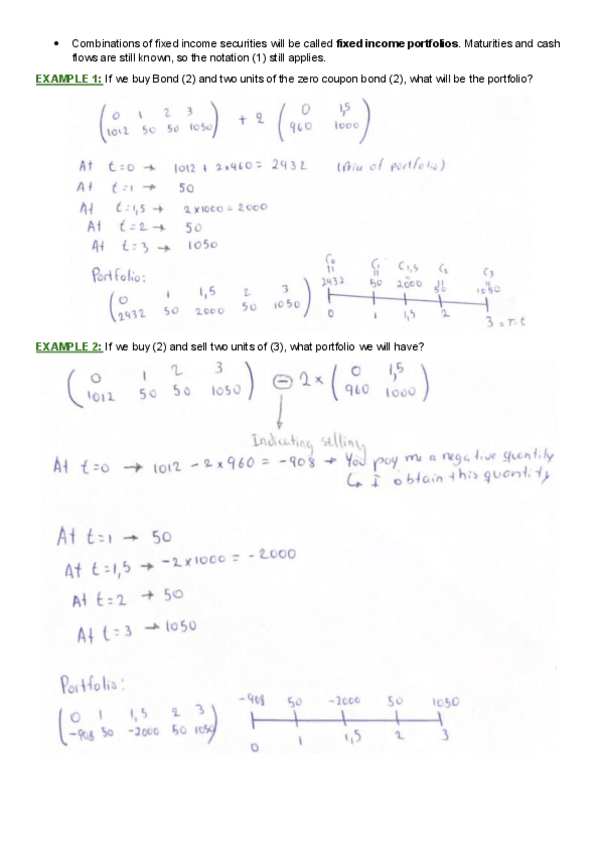 • Combinations of fixed income securities will be called fixed income portfolios. Maturities and cash
flows are still known, so the notation (1) still applies.
EXAMPLE 1: If we buy Bond (2) and two units of the zero coupon bond (2), what will be the portfolio?
( 0 1 2 3 ) + 2 ( 0 1,5 )
( 1012 50 50 1050 ) ( 960 1000 )
At t=0 → 1012 + 2x960 = 2432 (Price of portfolio)
At t=1 → 50
At t=1,5 → 2x1000 = 2000
At t=2 → 50
At t=3 → 1050
Portfolio:
( 0 1 1,5 2 3 )
( 2432 50 2000 50 1050 )
C0 C1 C1,5 C2 C3
2432 50 2000 50 1050
0 1 1,5 2 3 = T.t
EXAMPLE 2: If we buy (2) and sell two units of (3), what portfolio we will have?
( 0 1 2 3 ) − 2 x ( 0 1,5 )
( 1012 50 50 1050 ) ( 960 1000 )
Indicating selling
At t=0 → 1012 − 2x960 = −908 → You pay me a negative quantity
↳ I obtain this quantity
At t=1 → 50
At t=1,5 → −2x1000 = −2000
At t=2 → 50
At t=3 → 1050
Portfolio:
( 0 1 1,5 2 3 )
( −908 50 −2000 50 1050 )
−908 50 −2000 50 1050
0 1 1,5 2 3